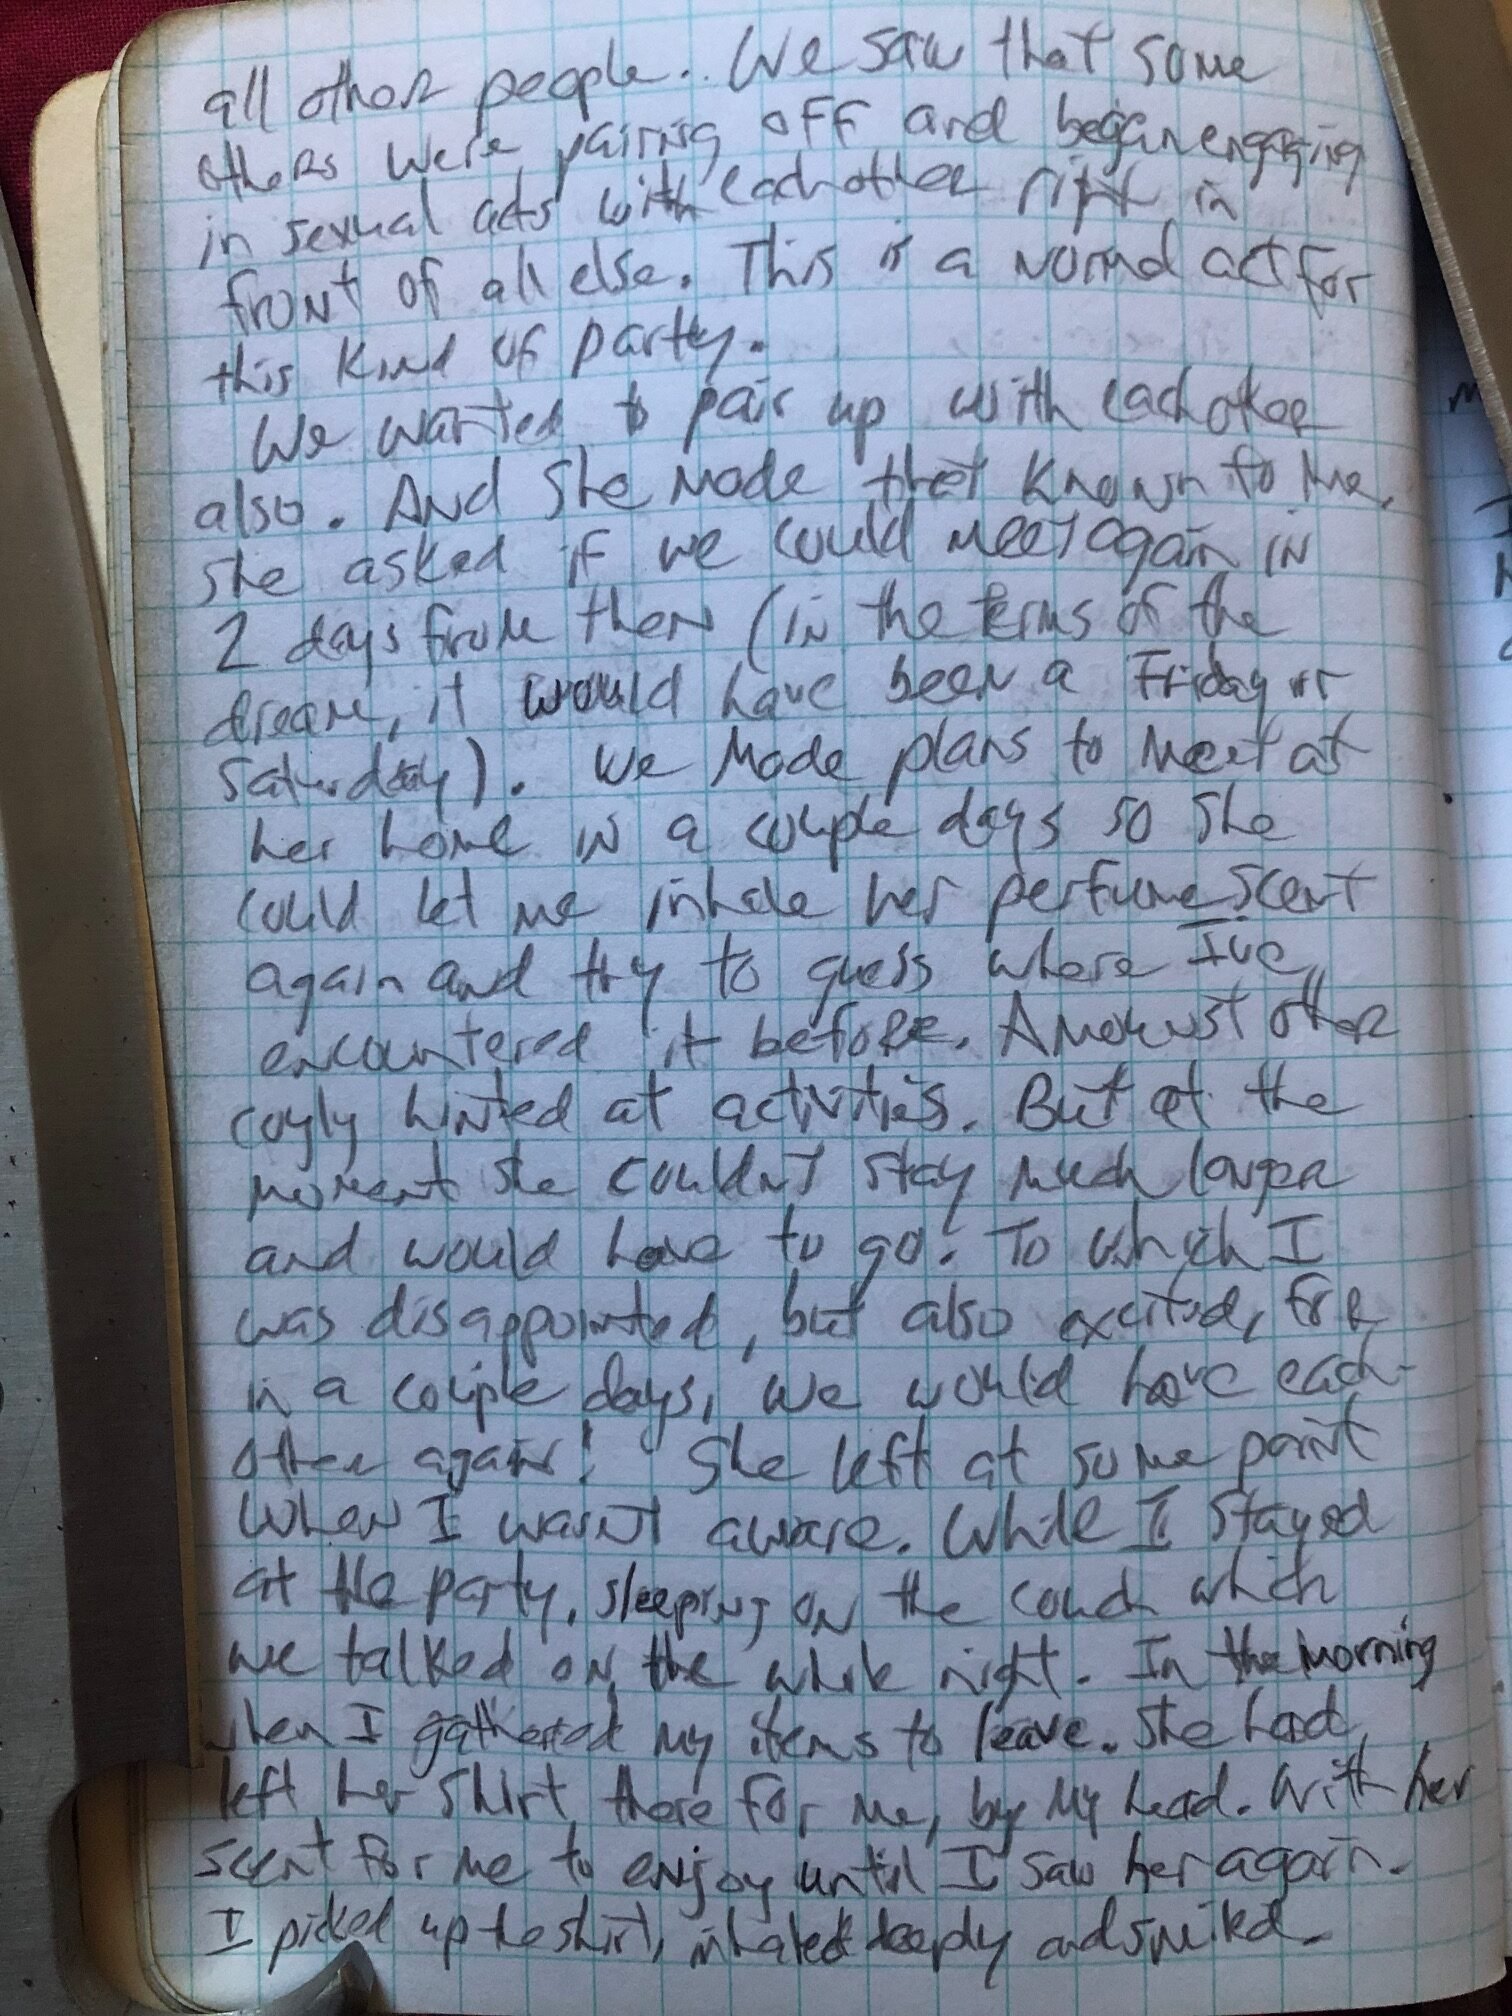 all other people.. We saw that some
others were pairing off and began engaging
in sexual acts with eachother right in
front of all else. This is a normal act for
this kind of party.
We wanted to pair up with eachother
also. And she made that known to me.
she asked if we could meet again in
2 days from then (in the terms of the
dream, it would have been a Friday or
Saturday). We made plans to meet at
her home in a couple days so she
could let me inhale her perfume scent
again and try to guess where Ive
encountered it before. Amoungst other
coyly hinted at activities. But at the
moment she couldnt stay much longer
and would have to go. To which I
was disappointed, but also excited, for
in a couple days, we would have each-
other again! She left at some point
when I wasnt aware. While I stayed
at the party, sleeping on the couch which
we talked on the whole night. In the morning
when I gathered my items to leave. She had
left her shirt there for me, by my head. With her
scent for me to enjoy until I saw her again.
I picked up the shirt, inhaled deeply and smiled.